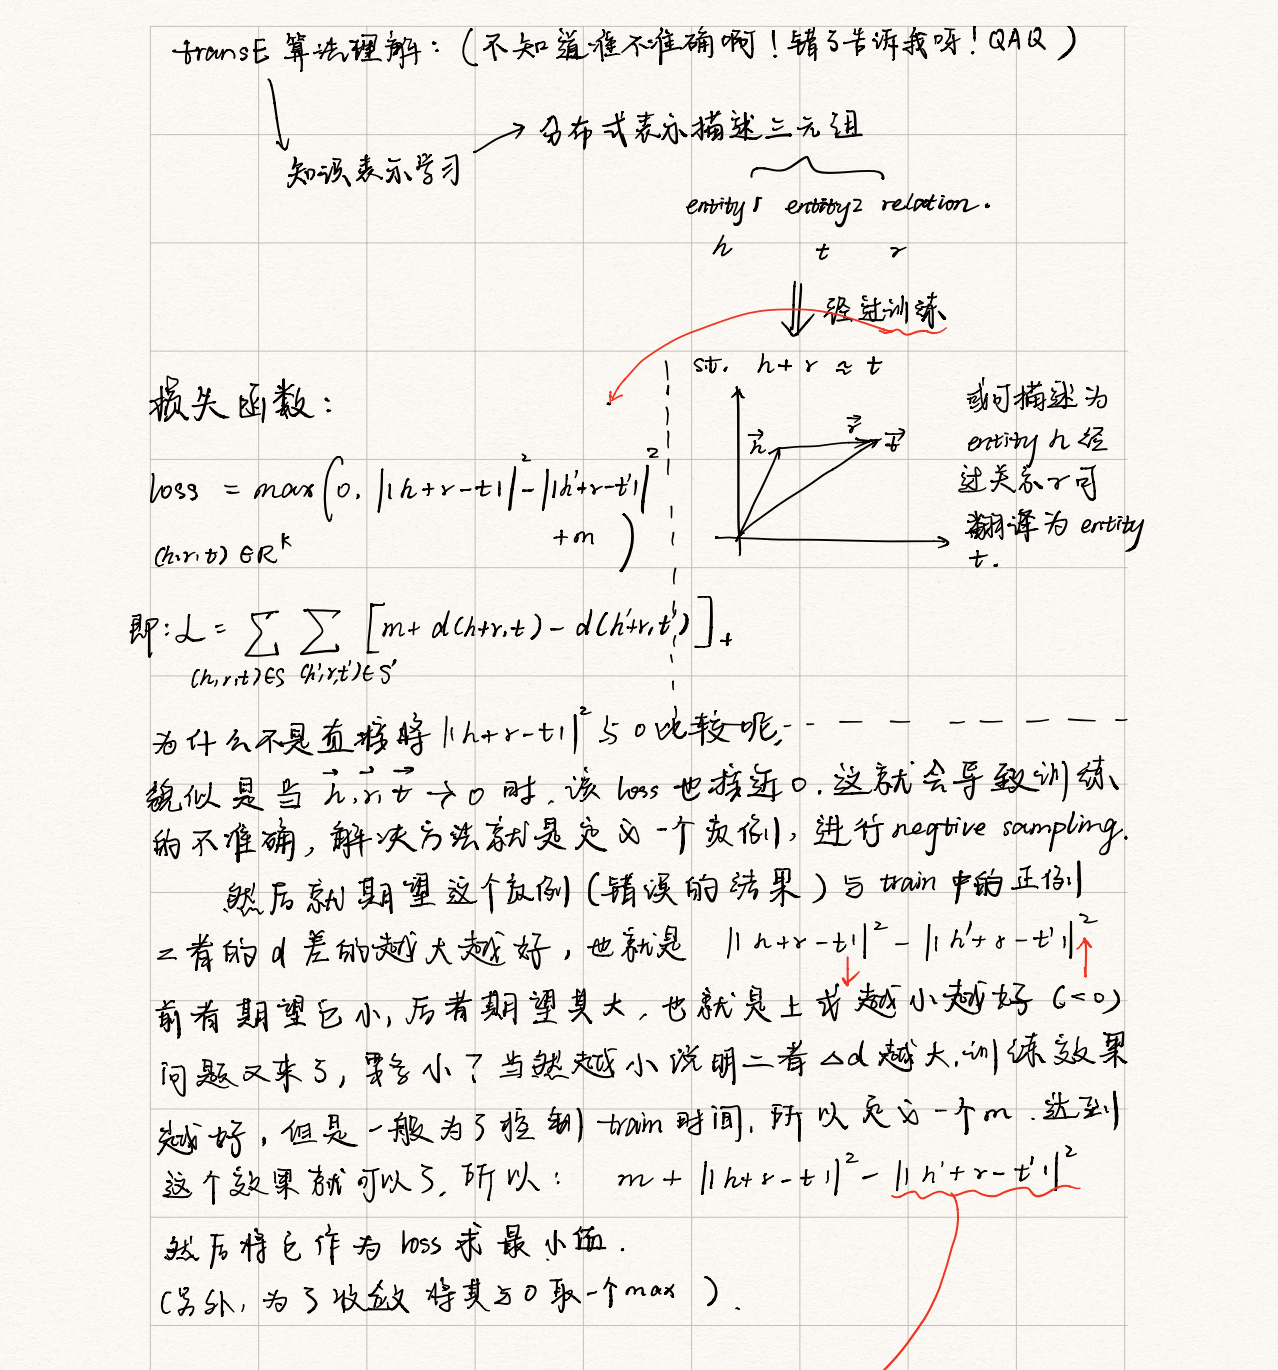 transE 算法理解：(不知道准不准确啊！错了告诉我呀！QAQ)
知识表示学习 → 分布式表示描述三元组
entity1 entity2 relation.
h t r
经过训练
s.t. h+r ≈ t
损失函数：
loss = max(0, ||h+r-t||² - ||h'+r-t'||² + m)
(h,r,t) ∈ R^k
h r t
或可描述为
entity h 经
过关系r可
翻译为 entity
t.
即：L = Σ Σ [m + d(h+r,t) - d(h'+r,t')]₊
(h,r,t)∈S (h',r,t')∈S'
为什么不是直接将 ||h+r-t||² 与 0 比较呢,
貌似是当 h, r, t → 0 时, 该 loss 也接近 0. 这就会导致训练
的不准确, 解决方法就是定义一个负例, 进行 negtive sampling.
然后就期望这个负例(错误的结果)与 train 中的正例
二者的 d 差的越大越好, 也就是 ||h+r-t||² - ||h'+r-t'||²
前者期望它小, 后者期望其大, 也就是上式越小越好 (<0)
问题又来了, 要多小？当然越小说明二者 Δd 越大, 训练效果
越好, 但是一般为了控制 train 时间, 所以定义一个 m. 达到
这个效果就可以了, 所以： m + ||h+r-t||² - ||h'+r-t'||²
然后将它作为 loss 求最小值.
(另外, 为了收敛将其与 0 取一个 max).